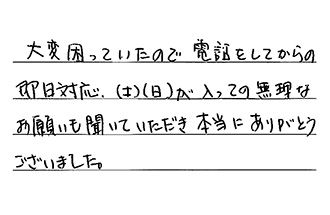 大変困っていたので電話をしてからの
即日対応、(土)(日)が入っての無理な
お願いも聞いていただき本当にありがとう
ございました。